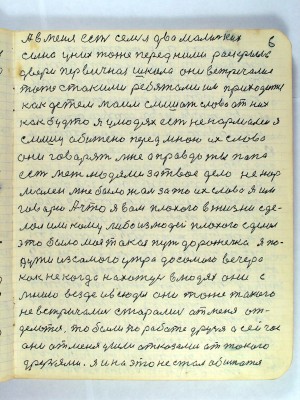 6
А в меня есть семья два маленких
сына у них тоже перед ними раскрыла
двери первичная школа они встричалися
тоже с такими ребятами им приходится
как детям моим слишат слова от них
как будто я у людях есть не нармален я
слишу обижено перед мною их слова
они говарят мне а правда ты папа
есть меж людями за твое дело не нар
мален мне было жал за то их слова я им
говарю А что я вам плохого в жизни сде-
лал им кому либо из люди плохого сделал
это была моя такая пут дорожечка я по-
йду из самого утра до самого вечера
как не когда нахожус в людях они с
мною везде и всюды они тоже такого
не встричали старалис от меня от-
делятся. то были по работе друзя а сейчас
они от меня ушли отказалис от такого
друзями. я и на это не стал обижатя